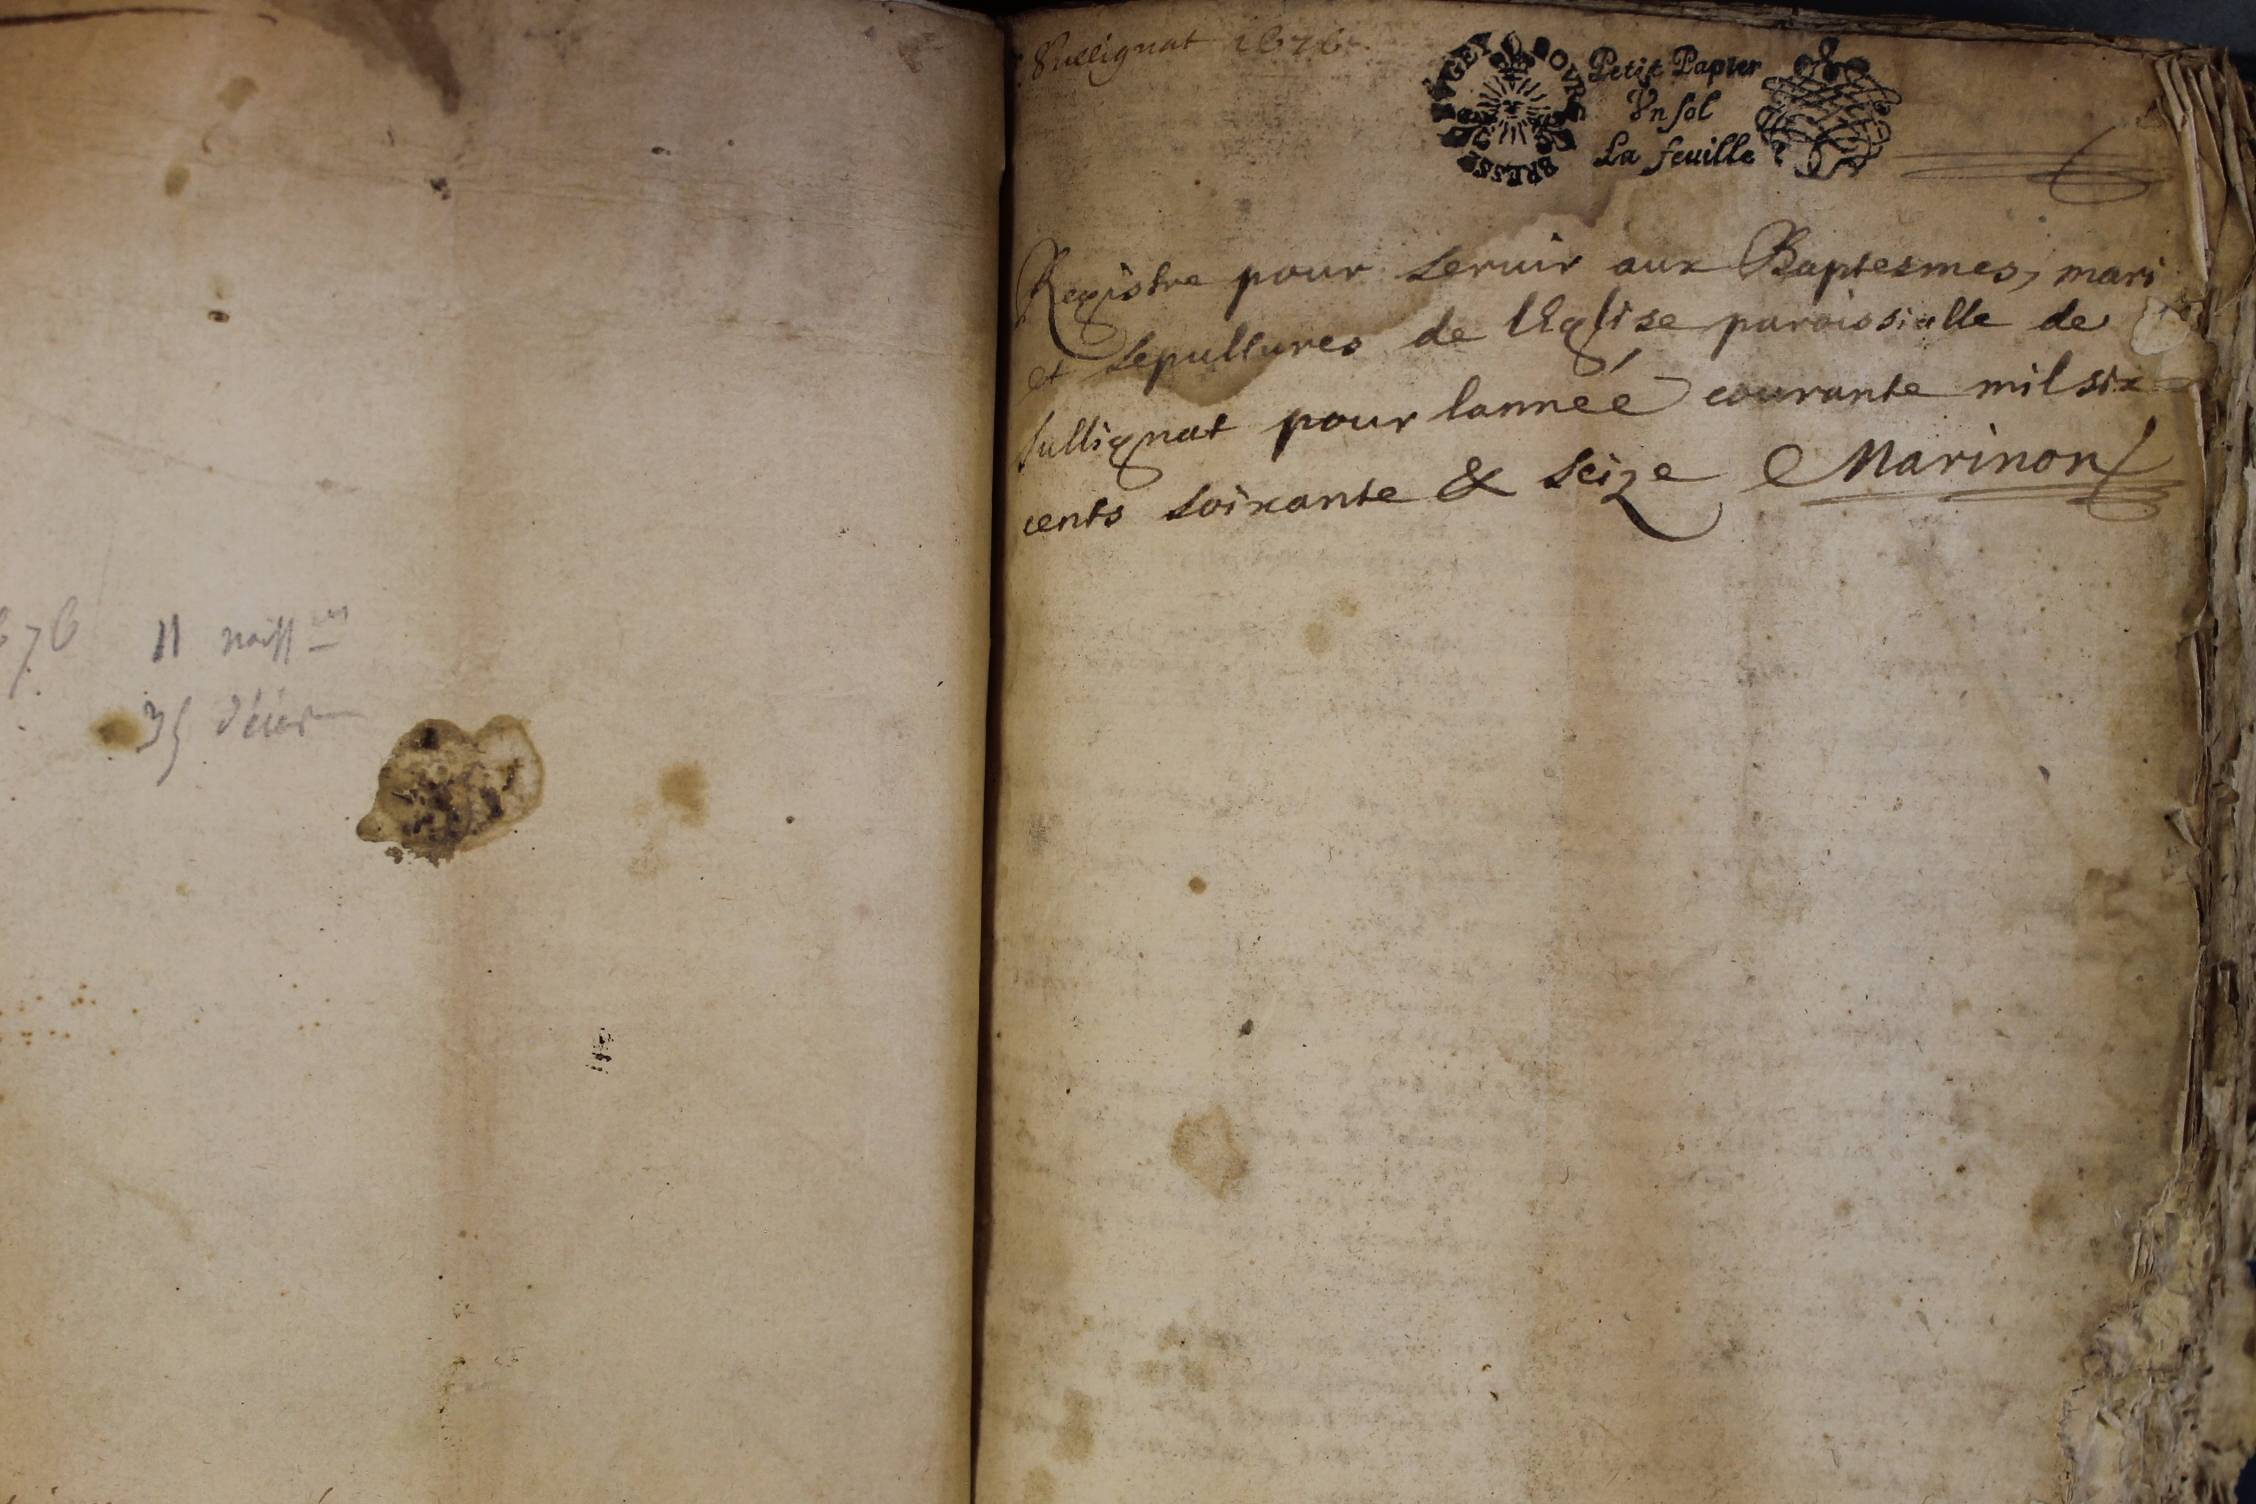 676 11 naiss
35 décès
Sullignat 1676
BVGEY BOVRG BRESSE
Petit Papier
Vn sol
La feuille
Registre pour seruir aux Baptesmes, mari
et sepultures de lEglise paroissialle de
sullignat pour lannéé courante mil six
cents soixante & seize Marinon